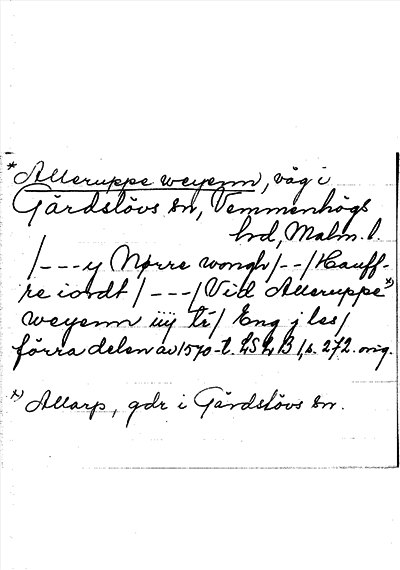 * Alleruppe weyenn, väg i
Gärdslövs sn, Vemmenhögs
hd, Malm. l.
/---y Nørre wongh/--/Hauff-
re iordt/---/Vid Alleruppe x)
weyenn iiij ti/ Eng j les/
förra delen av 1570-t. LSLB 1, s. 272. orig.
x) Allarp, gdr i Gärdslövs sn.